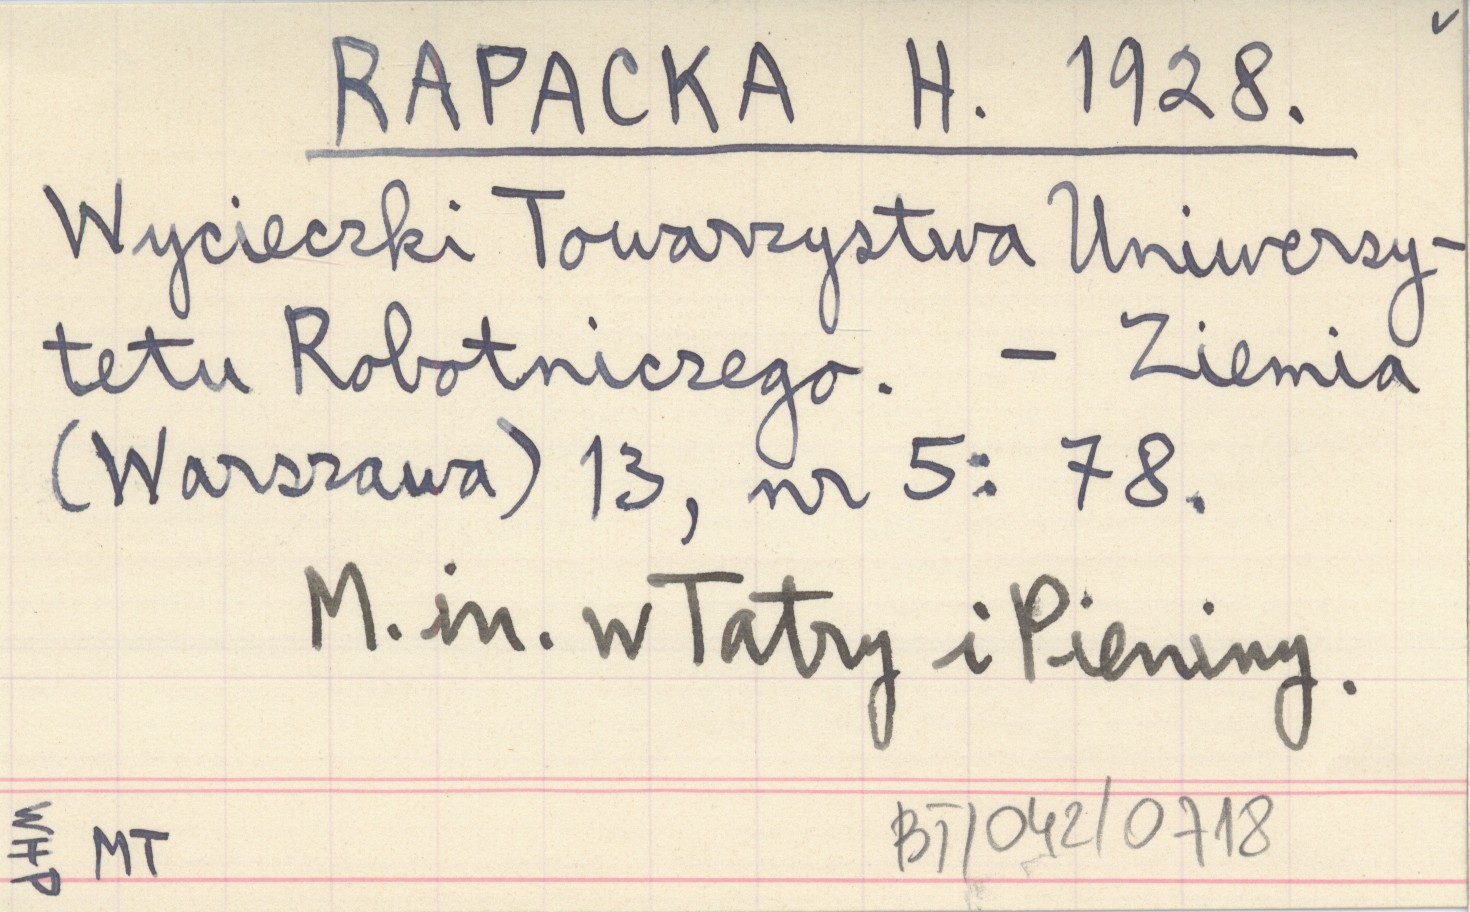 RAPACKA H. 1928.
Wycieczki Towarzystwa Uniwersy-
tetu Robotniczego. – Ziemia
(Warszawa) 13, nr 5: 78.
M. in. w Tatry i Pieniny.
WHP MT
BT/042/0718